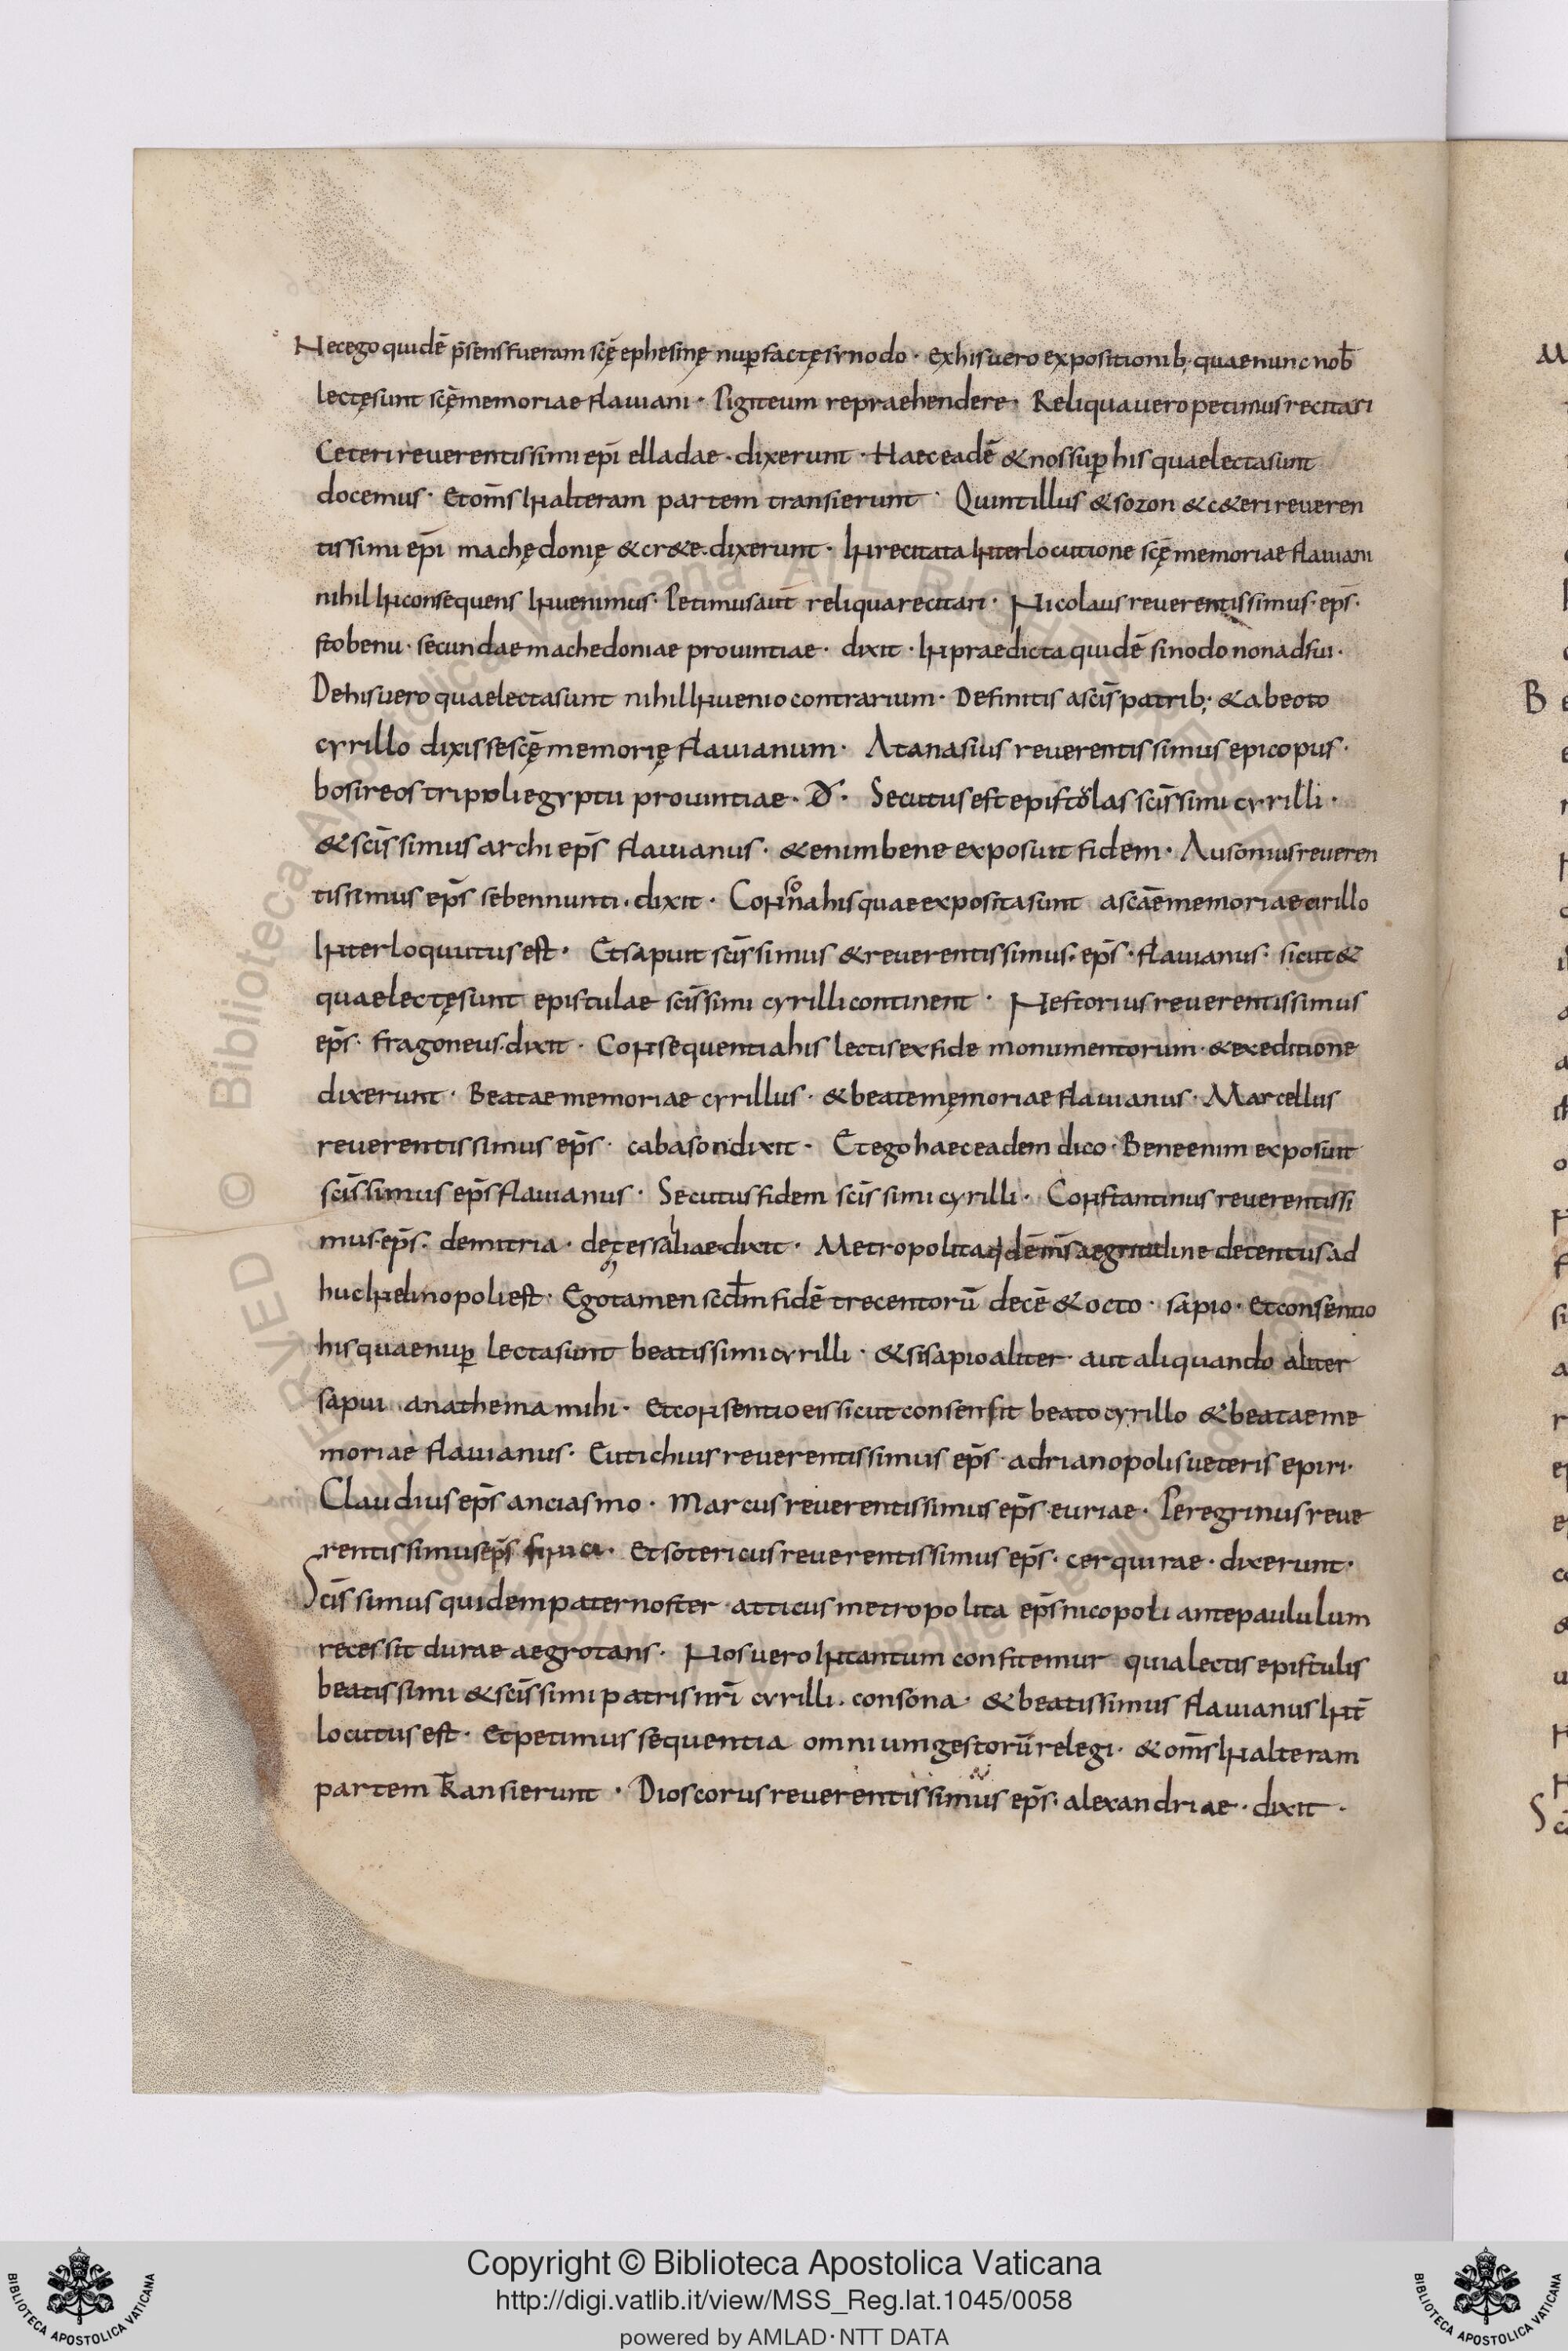 Nec ego quidē p̄sens fueram scę̄ ephesinę nup factę synodo · ex his uero expositionib; quae nunc nob̄
lectę sunt scę̄ memoriae flauiani · Piget eum repraehendere · Reliqua uero petimus recitari
Ceteri reuerentissimi ep̄i elladae · dixerunt · Haec eadē & nos sup his quae lecta sunt
docemus · Et om̄s in alteram partem transierunt · Quintillus & sozon & c&eri reueren
tissimi ep̄i machędonię & cr&e · dixerunt · In recitata interlocutione scę̄ memoriae flauiani
nihil inconsequens inuenimus · Petimus aut̄ reliqua recitari · Nicolaus reuerentissimus · ep̄s ·
stobenu · secundae machedoniae prouintiae · dixit · In praedicta quidē sinodo non adfui ·
De his uero quae lecta sunt nihil inuenio contrarium · Definitis a scīs patrib; · & a beato
cyrillo dixisse scę̄ memorię flauianum · Atanasius reuerentissimus epicopus ·
bosireos tripoli egyptu prouintiae · D̄ · Secutus est epistolas scīssimi cyrilli ·
& scīssimus archi ep̄s flauianus · & enim bene exposuit fidem · Ausonius reueren
tissimus ep̄s sebennunti · dixit · Consona his quae exposita sunt a scāe memoriae cirillo
interloquutus est · Et sapuit scīssimus & reuerentissimus · ep̄s · flauianus · sicut &
quae lectę sunt epistulae scīssimi cyrilli continent · Nestorius reuerentissimus
ep̄s · fragoneus · dixit · Consequentia his lectis ex fide monumentorum · & ex editione
dixerunt · Beatae memoriae cyrillus · & beate męmoriae flauianus · Marcellus
reuerentissimus ep̄s · cabason dixit · Et ego haec eadem dico · Bene enim exposuit
scīssimus ep̄s flauianus · Secutus fidem scīssimi cyrilli · Constantinus reuerentissi
mus · ep̄s · demitria · de tessaliae dixit · Metropolita qdē m̄s aegritudine detentus ad
huc inelinopoli est · Ego tamen secd̄m fidē trecentorū decē & octo · sapio · Et consentio
his quae nup lecta sunt beatissimi cyrilli · & si sapio aliter aut aliquando aliter
sapui anathema mihi · Et consentio eis sicut consensit beato cyrillo & beatae me
moriae flauianus · Eutichius reuerentissimus ep̄s · adrianopolis ueteris epiri ·
Claudius ep̄s anciasmo · Marcus reuerentissimus ep̄s euriae · Peregrinus reue
rentissimus ep̄s · Et sotericus reuerentissimus ep̄s · cerquirae · dixerunt ·
Scīssimus quidem pater noster atticus metropolita ep̄s nicopoli ante paululum
recessit durae aegrotans · Nos uero intantum confitemur quia lectis epistulis
beatissimi & scīssimi patris nr̄i cyrilli · consona · & beatissimus flauianus int̄
locutus est · Et petimus sequentia omnium gestorū relegi · & om̄s in alteram
partem transierunt · Dioscorus reuerentissimus ep̄s · alexandriae · dixit ·
Copyright © Biblioteca Apostolica Vaticana
http://digi.vatlib.it/view/MSS_Reg.lat.1045/0058
powered by AMLAD · NTT DATA